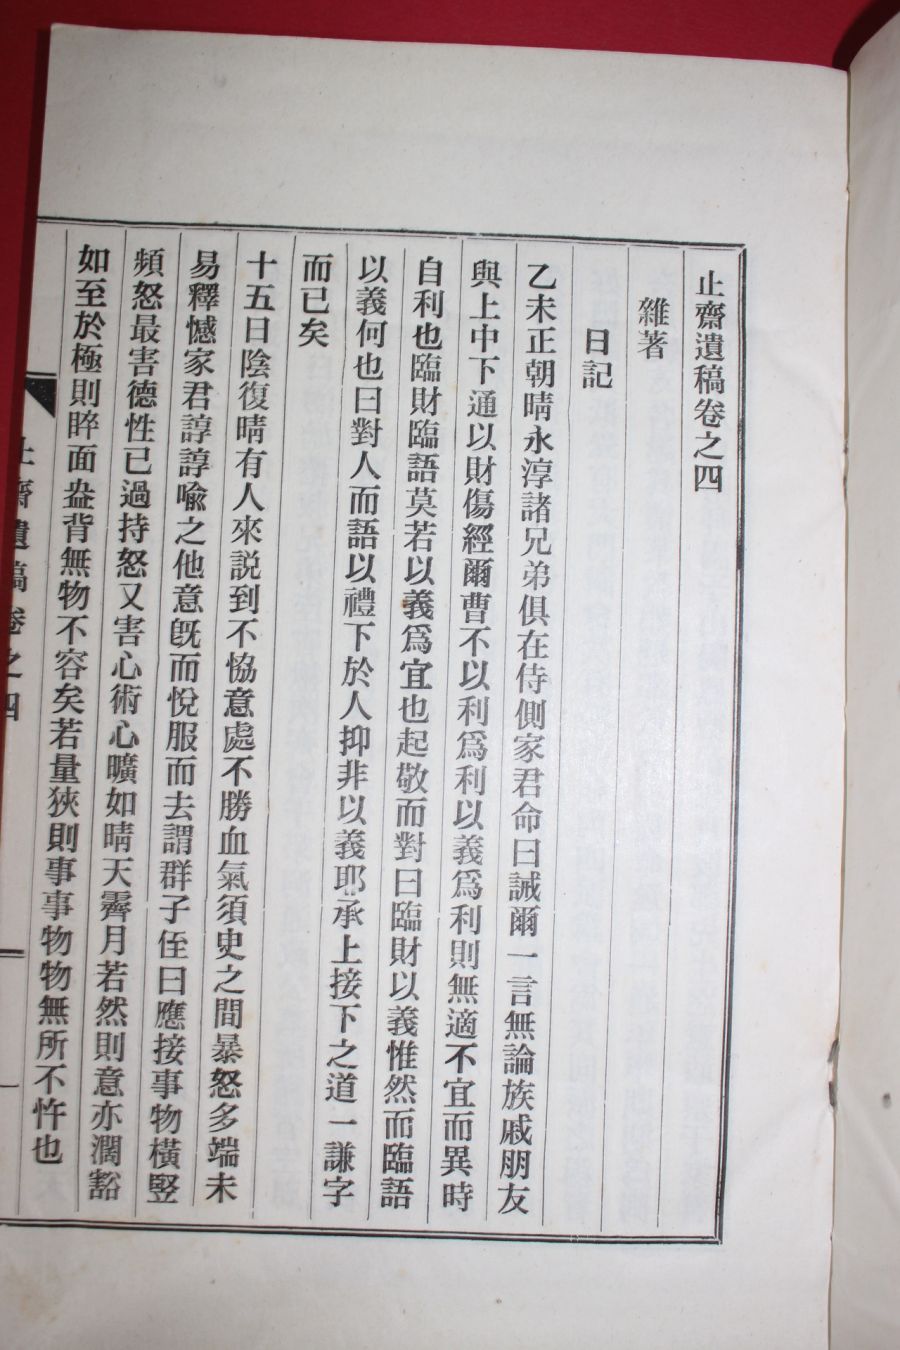 止齋遺稿卷之四
雜著
日記
乙未正朝晴永淳諸兄弟俱在侍側家君命曰誡爾一言無論族戚朋友
與上中下通以財傷經爾曹不以利爲利以義爲利則無適不宜而異時
自利也臨財臨語莫若以義爲宜也起敬而對曰臨財以義惟然而臨語
以義何也曰對人而語以禮下於人抑非以義耶承上接下之道一謙字
而已矣
十五日陰復晴有人來説到不恊意處不勝血氣須史之間暴怒多端未
易釋憾家君諄諄喩之他意旣而悅服而去謂群子侄曰應接事物橫竪
頻怒最害德性已過持怒又害心術心曠如晴天霽月若然則意亦濶豁
如至於極則睟面盎背無物不容矣若量狹則事事物物無所不忤也
止齋遺稿卷之四 一